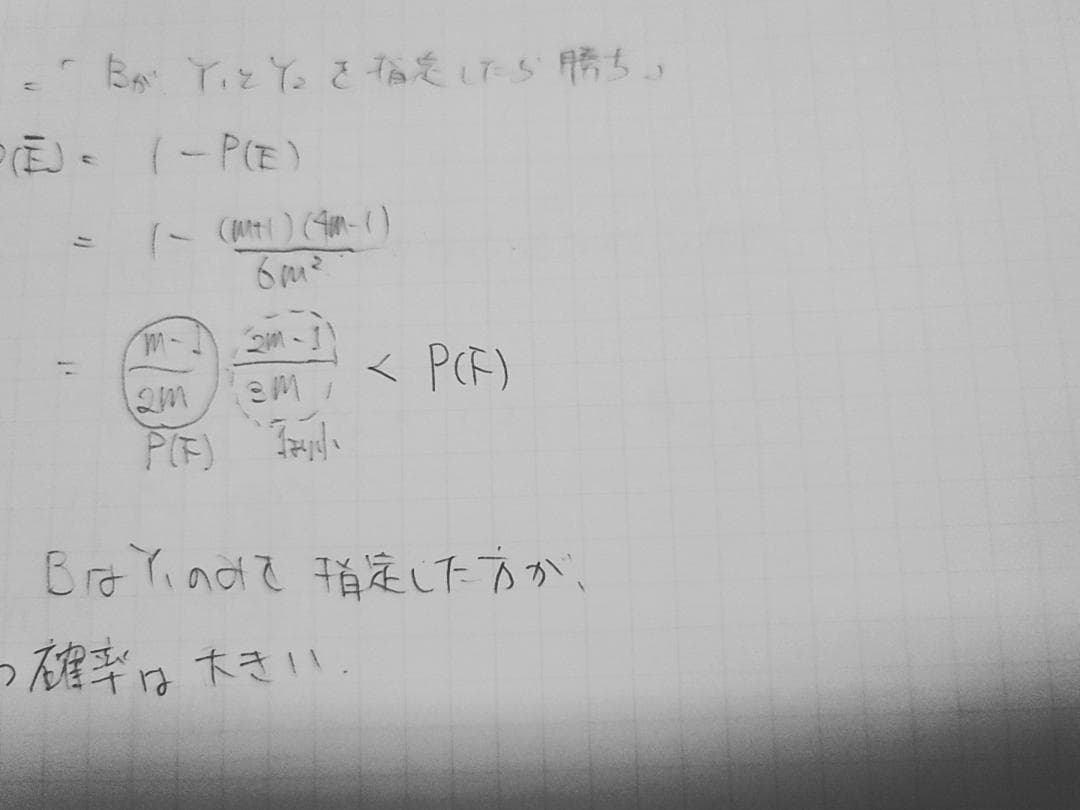 =「BがY₁とY₂を指定したら勝ち」
P(E̅) = 1 - P(E)
= 1 - (m+1)(4m-1) / 6m²
= (m-1)/2m · (2m-1)/3m < P(F)
P(F)
BはY₁のみを指定した方が、
つ確率は大きい.